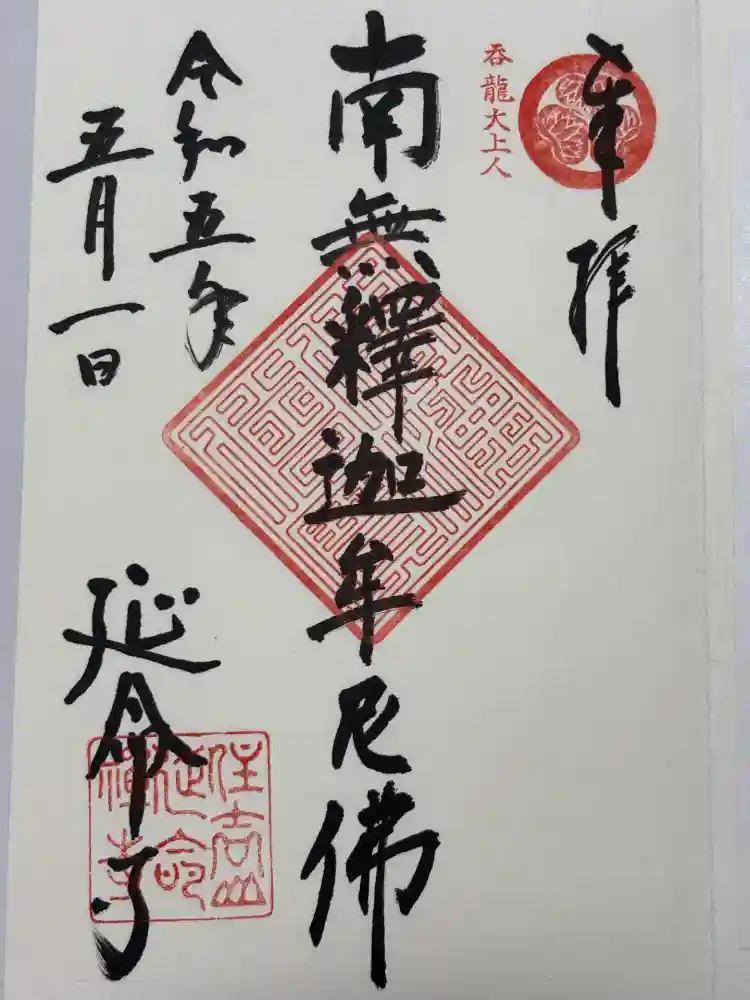 奉拝
呑龍大上人
南無釋迦牟尼佛
令和五年
五月一日
延命寺
住吉山
延命
禅寺